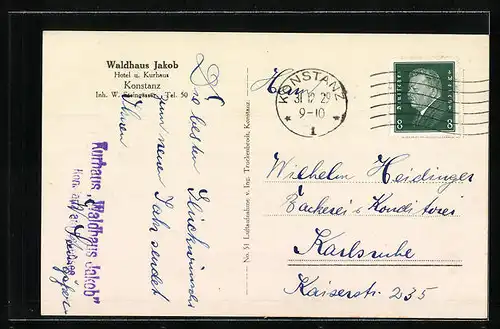 Waldhaus Jakob
Hotel u. Kurhaus
Konstanz
Inh. W. Tel. 50
Die besten Glückwünsche
zum neuen Jahr sendet
Ihnen
Kurhaus „Waldhaus Jakob"
No. 51 Luftaufnahme v. Ing. Konstanz.
KONSTANZ
31 12 29
9-10
1
DEUTSCHES REICH
8 8
Herrn
Wilhelm Heidinger
Bäckerei & Konditorei
Karlsruhe
Kaiserstr. 235